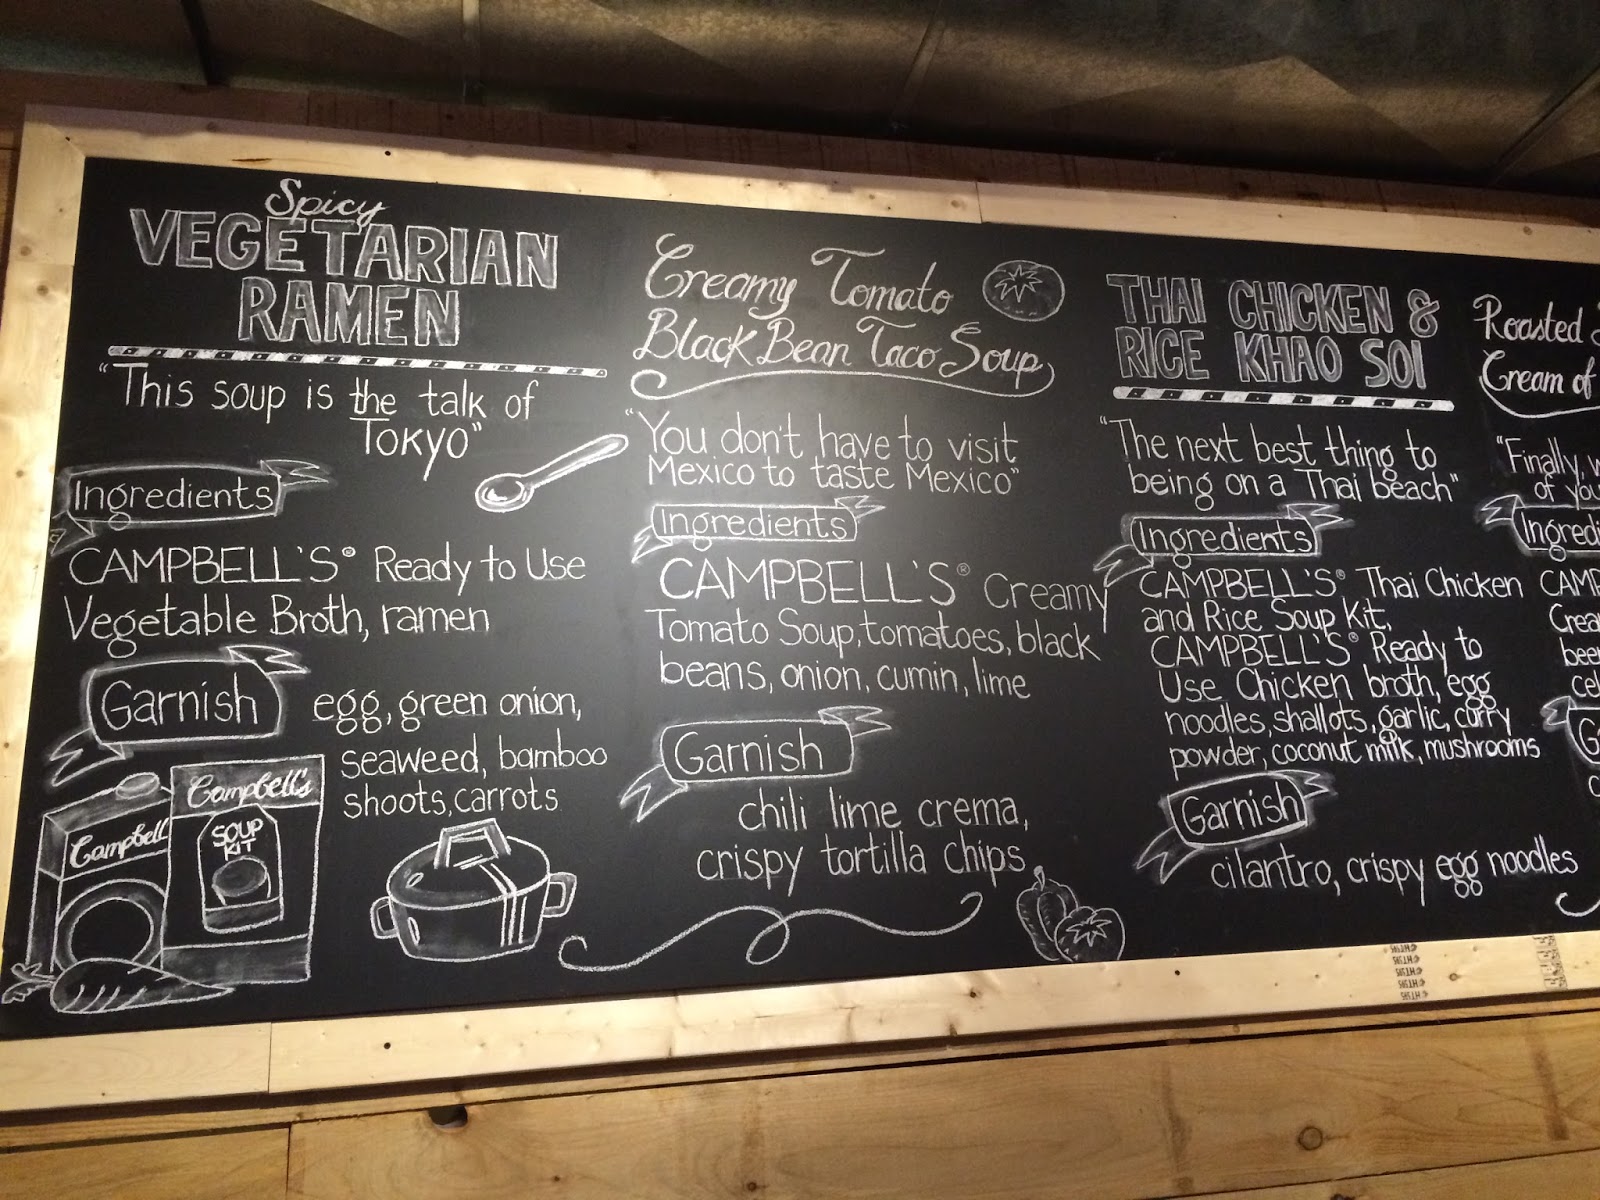 Spicy
VEGETARIAN
RAMEN
"This soup is the talk of
Tokyo"
Ingredients
CAMPBELL'S® Ready to Use
Vegetable Broth, ramen
Garnish
egg, green onion,
seaweed, bamboo
shoots, carrots
Campbell
Campbell's
SOUP
KIT
Creamy Tomato
Black Bean Taco Soup
"You don't have to visit
Mexico to taste Mexico"
Ingredients
CAMPBELL'S® Creamy
Tomato Soup, tomatoes, black
beans, onion, cumin, lime
Garnish
chili lime crema,
crispy tortilla chips
THAI CHICKEN &
RICE KHAO SOI
"The next best thing to
being on a Thai beach"
Ingredients
CAMPBELL'S® Thai Chicken
and Rice Soup Kit,
CAMPBELL'S® Ready to
Use Chicken broth, egg
noodles, shallots, garlic, curry
powder, coconut milk, mushrooms
Garnish
cilantro, crispy egg noodles
Roasted
Cream of
"Finally, w
of you
Ingredi
CAMP
Crea
bee
cel
G
c